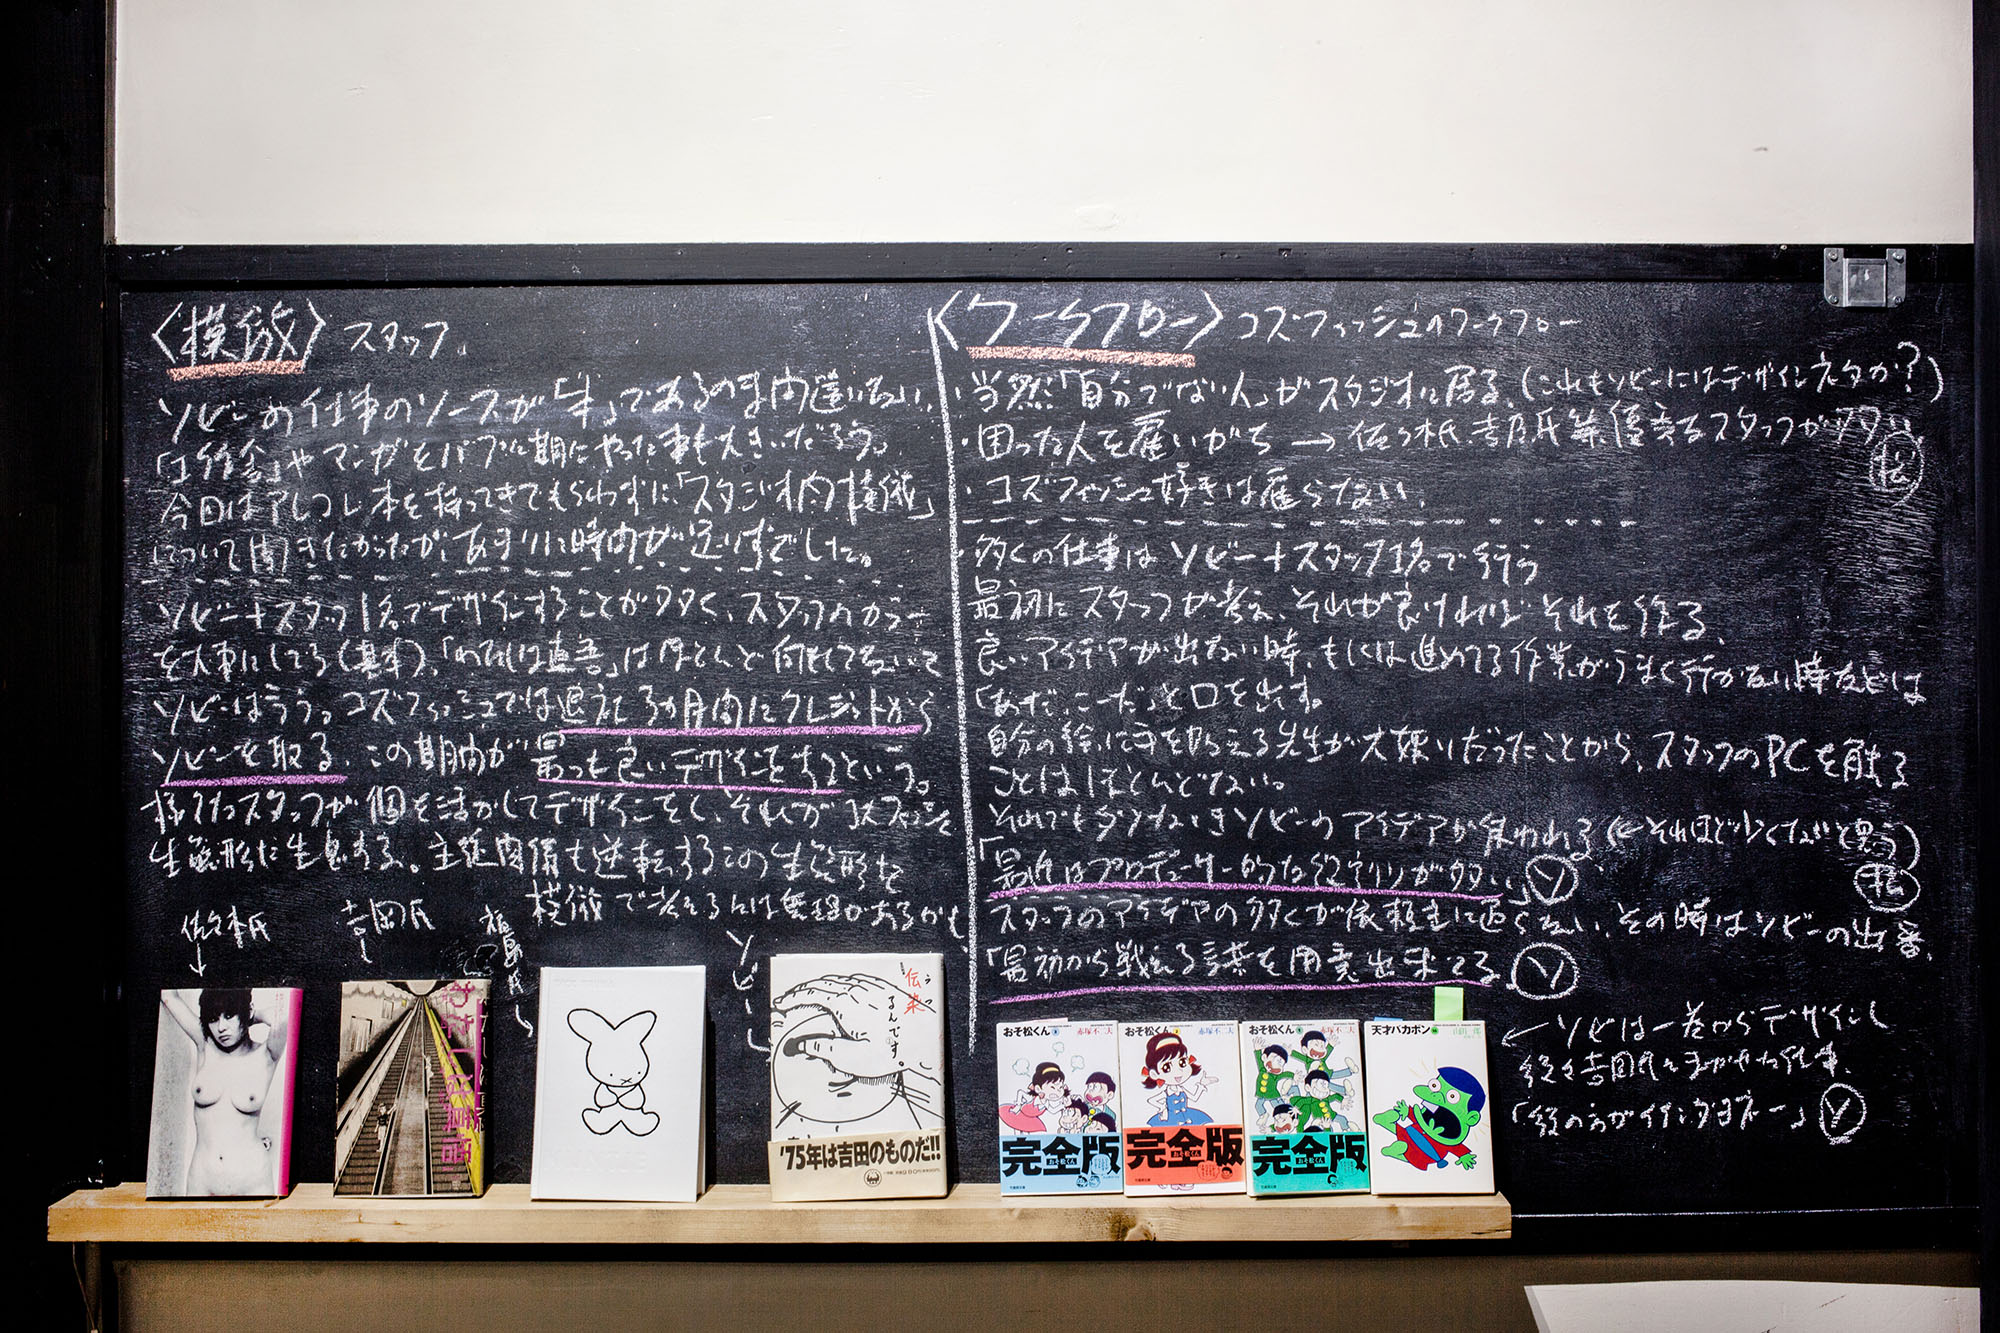 〈模倣〉スタッフ
ソビーの仕事のソースが「本」であるのは間違いない、
やマンガをバブル期にやった事も大きいだろう。
今回はアレコレ本を持ってきてもらわずに、「スタジオ内模倣」
について聞きたかったが、あまりに時間が足りずでした。
ソビー+スタッフ1名でデザインすることが多く、スタッフのカラー
を大事にしてる(基本)、「わたしは直善」はほとんど何もしてないって
ソビーは言う。コズフィッシュでは退社して3ヶ月間にクレジットから
ソビーを取る。この期間が最も良いデザインをするという。
スタッフが個を活かしてデザインをし、それがコズフィッシュを
生態形に生息する。主従関係も逆転するこの生態形を
模倣で考えるには無理があるかも、
佐々木氏
吉岡氏
福島氏
ソビー
伝染るんです。
'75年は吉田のものだ!!
〈ワークフロー〉コズフィッシュのワークフロー
・当然「自分でない人」がスタジオに居る、(これもソビーにはデザインネタか?)
・困った人を雇いがち → 佐々木氏、吉岡氏等、優秀なスタッフが多い
・コズフィッシュ好きは雇らない、
・多くの仕事はソビー+スタッフ1名で行う
最初にスタッフが考え、それが良ければそれを作る、
良いアイデアが出ない時、もしくは進めてる作業がうまく行かない時などは
「あーだ、こーだ」と口を出す。
自分の絵に手を加える先生が大嫌いだったことから、スタッフのPCを触る
ことはほとんどない。
それでもダメなときソビーのアイデアが使われる(←それほど少くないと思う)
「最近はプロデューサー的なデザインが多い、」ソ
スタッフのアイデアの多くが依頼主に通らない、その時はソビーの出番、
「最初から戦える言葉を用意出来てる」ソ
←ソビーは一巻からデザインし
続く吉岡氏にまかせた仕事、
「絵の方がイインダヨネー」ソ
おそ松くん 赤塚不二夫
完全版
おそ松くん
おそ松くん 赤塚不二夫
完全版
おそ松くん
おそ松くん 赤塚不二夫
完全版
おそ松くん
天才バカボン